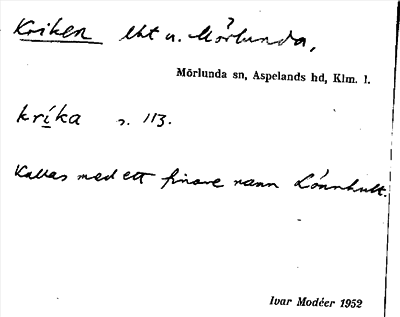 Kriken lht u. Mörlunda,
Mörlunda sn, Aspelands hd, Klm. l.
krika s. 113.
Kallas med ett finare namn Lönnhult.
Ivar Modéer 1952